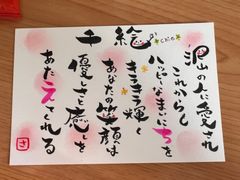 千絵
沢山の人に愛され
これからも
ハッピーなまいにちを
キラキラ輝く
あなたの笑顔は
優しさと癒しを
あたえてくれる